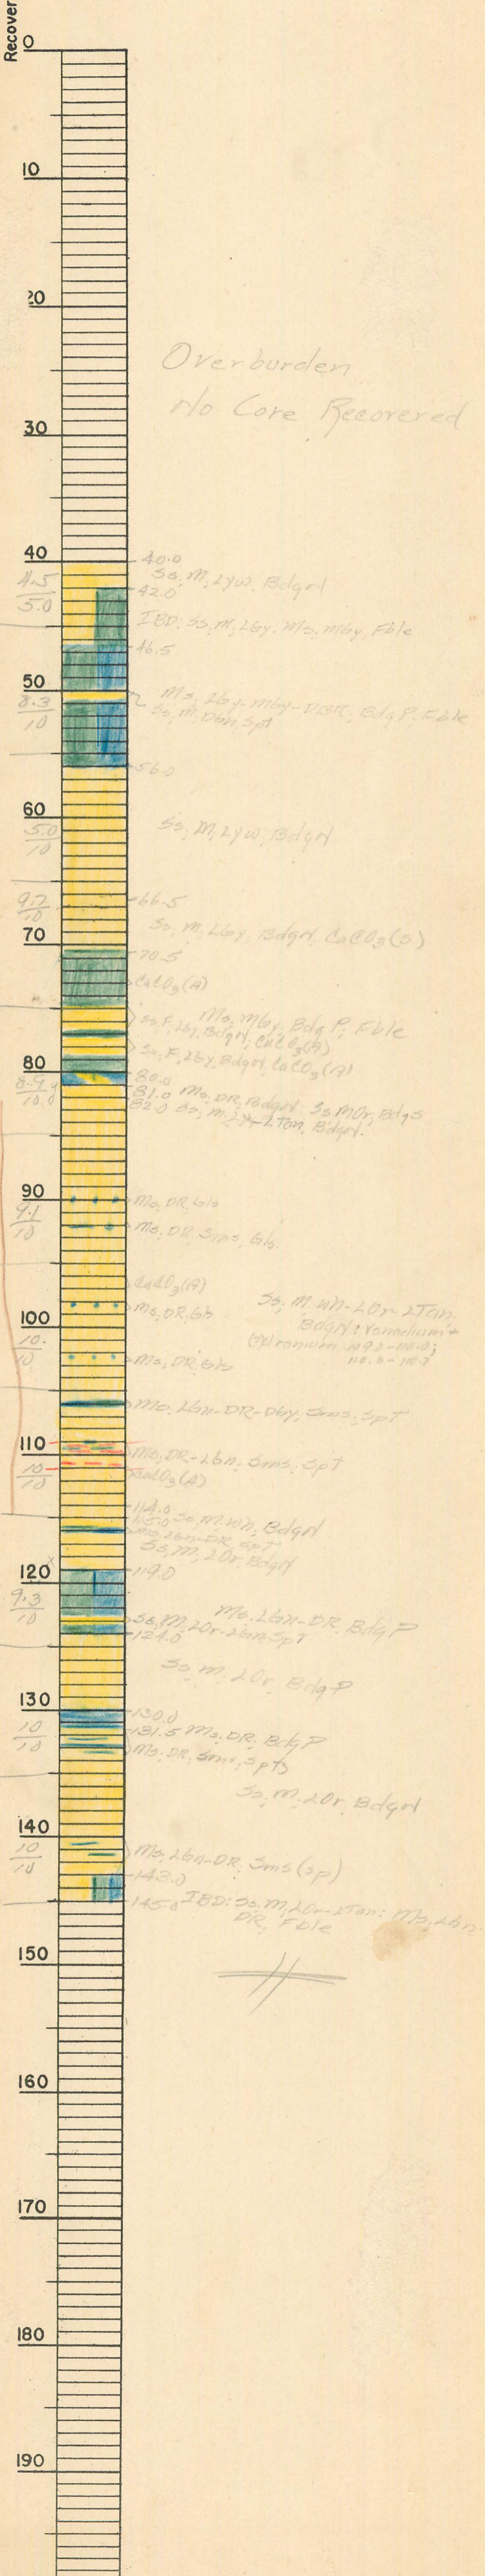 Recover
0
10
20
Overburden
No Core Recovered
30
40
40.0
Ss, M, LYW, Bdgrl
4.5
5.0
42.0
IBD: Ss, M, LGy. Ms, MGy, Fble
46.5
50
8.3
10
Ms, LGy-MGy-DBR, Bdg P, Fble
Ss, M, DGn, Spt
56.0
60
5.0
10
Ss, M, LYW, Bdgrl
9.7
10
66.5
Ss, M, LGy, Bdgrl, CaCO3(S)
70
70.5
CaCO3(A)
Ms, MGy, Bdg P, Fble
Ss, F, LGy, Bdgrl, CaCO3(A)
Ss, F, LGy, Bdgrl, CaCO3(A)
80
80.0
8.9
10.0
81.0 Ms, DR, Bdgrl: Ss MOr, Bdg S
82.0 Ss, M, LTan, Bdgrl.
90
Ms, DR, Gls
9.1
10
Ms, DR, Sms, Gls.
CaCO3(A)
Ms, DR, Gls
Ss, M, Wh-LOr-LTan,
Bdgrl: Vanadium +
Uranium 109.2-110.0;
110.8-110.9
100
10.
10
Ms, DR, Gls
Ms, LGn-DR-DGy, Sms, Spt
110
Ms, DR-LGn; Sms, Spt
10
10
CaCO3(A)
114.0
115.0 Ss, M, Wh, Bdgrl
Ms, LGn-DR, Spt
Ss, M, LOr, Bdgrl
120
119.0
9.3
10
Ms, LGn-DR, Bdg P
Ss, M, LOr-LGn, Spt
124.0
Ss, M, LOr, Bdg P
130
130.0
10
10
131.5 Ms, DR, Bdg P
Ms, DR, Sms, Spts
Ss, M, LOr, Bdgrl
140
10
10
Ms, LGn-DR, Sms (sp)
143.0
145.0 IBD: Ss, M, LOr-LTan: Ms, LGn
DR, Fble
150
160
170
180
190